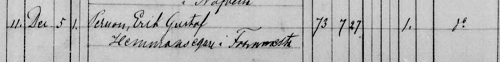 11. Dec. 5 1. Persson, Erik Gustaf 73 7 27 1. 1º
Hemmansegare i